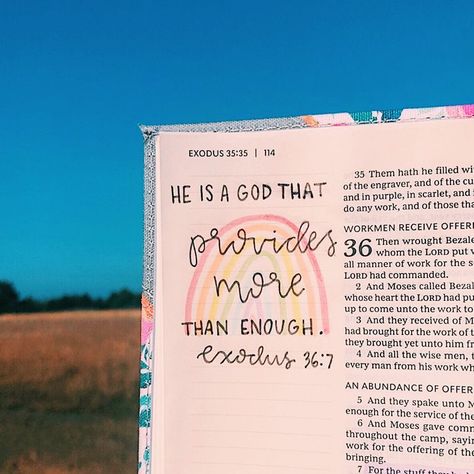 EXODUS 35:35 | 114
HE IS A GOD THAT
provides
more
THAN ENOUGH.
exodus 36:7
35 Them hath he filled wi
of the engraver, and of the cu
and in purple, in scarlet, and
do any work, and of those tha
WORKMEN RECEIVE OFFERI
36 Then wrought Bezale
whom the LORD put
all manner of work for the s
LORD had commanded.
2 And Moses called Bezal
whose heart the LORD had pu
up to come unto the work to
3 And they received of M
had brought for the work of t
they brought yet unto him fr
4 And all the wise men, t
every man from his work wh
AN ABUNDANCE OF OFFER
5 And they spake unto M
enough for the service of the
6 And Moses gave comm
throughout the camp, sayin
work for the offering of th
bringing.
7 For the stuff they